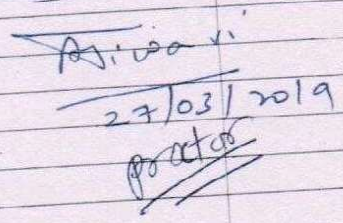 Asiwari
27/03/2019
proctor